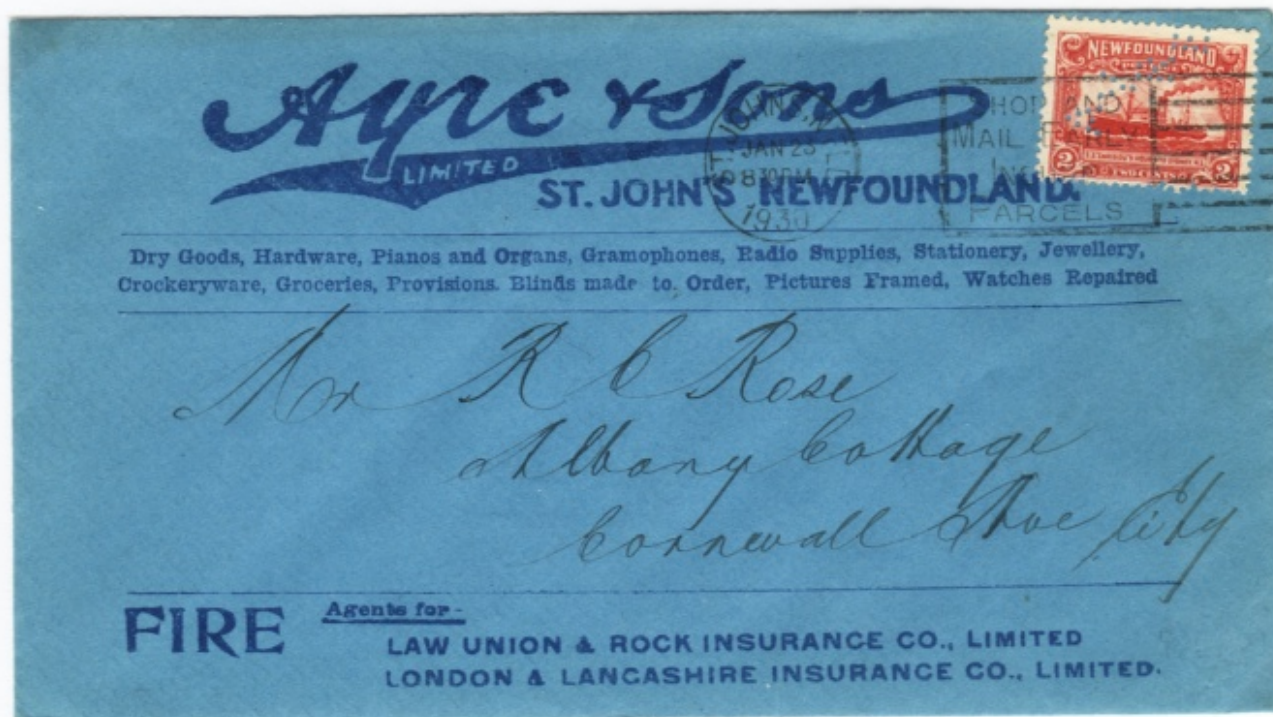 Ayre & Sons
LIMITED
ST. JOHN'S NEWFOUNDLAND.
NEWFOUNDLAND
2 2
TWO CENTS
ST. JOHN'S, N
JAN 23
8 30 PM
1930
SHOP AND
MAIL EARLY
PARCELS
Dry Goods, Hardware, Pianos and Organs, Gramophones, Radio Supplies, Stationery, Jewellery,
Crockeryware, Groceries, Provisions. Blinds made to. Order, Pictures Framed, Watches Repaired
Mr R C Rose
Albany Cottage
Cornwall Ave City
FIRE
Agents for -
LAW UNION & ROCK INSURANCE CO., LIMITED
LONDON & LANCASHIRE INSURANCE CO., LIMITED.